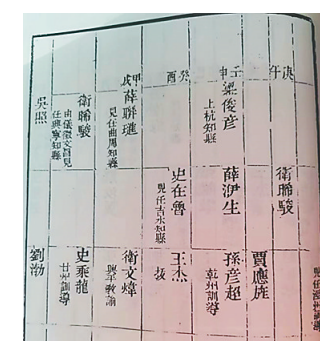 庚午
衛晞駿
賈應旌
壬申
梁俊彦
上杭知縣
薛伊生
孫彦超
乾州訓導
癸酉
史在魯
現任吉水知縣
王杰
甲戌
薛聯璡
見任曲周知縣
衛文煒
教諭
衛晞駿
由儀徵文昌見
任興寧知縣
史乘龍
訓導
吳照
劉渤